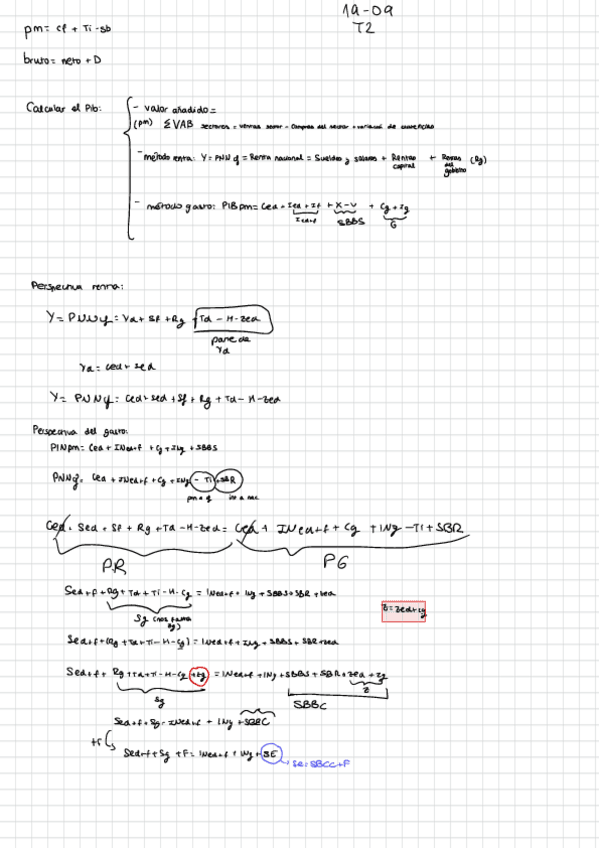 19-09
T2
pm = cf + Ti - sb
bruto = neto + D
Calcular el Pib:
- valor añadido =
(pm) ΣVAB sectores = ventas sector - compras del sector + variación de existencias
- método renta: Y = PNNcf = Renta nacional = Sueldos y salarios + Rentas capital + Rentas del gobierno (Rg)
- método gasto: PIBpm = Ced + Ied + If + X - V + Cg + Ig
Ied+f SBBS G
Perspectiva renta:
Y = PNNcf = Yd + Sf + Rg + Td - H - Zed
parte de Yd
Yd = Ced + Sed
Y = PNNcf = Ced + Sed + Sf + Rg + Td - H - Zed
Perspectiva del gasto:
PINpm = Ced + INed+f + Cg + INg + SBBS
PNNcf = Ced + INed+f + Cg + INg - Ti + SBR
pm a cf
Ced + Sed + Sf + Rg + Td - H - Zed = Ced + INed+f + Cg + INg - Ti + SBR
PR PG
Sed+f + Rg + Td + Ti - H - Cg = INed+f + INg + SBBS + SBR + Zed
Z = Zed + Zg
Sg (nos falta Zg)
Sed+f + (Rg + Td + Ti - H - Cg) = INed+f + INg + SBBS + SBR + Zed
Sed+f + Rg + Td + Ti - H - Cg + Zg = INed+f + INg + SBBS + SBR + Zed + Zg
Sg Z
SBBC
Sed+f + Sg = INed+f + INg + SBBC
+F
Sed+f + Sg + F = INed+f + INg + SE
SE = SBCC + F